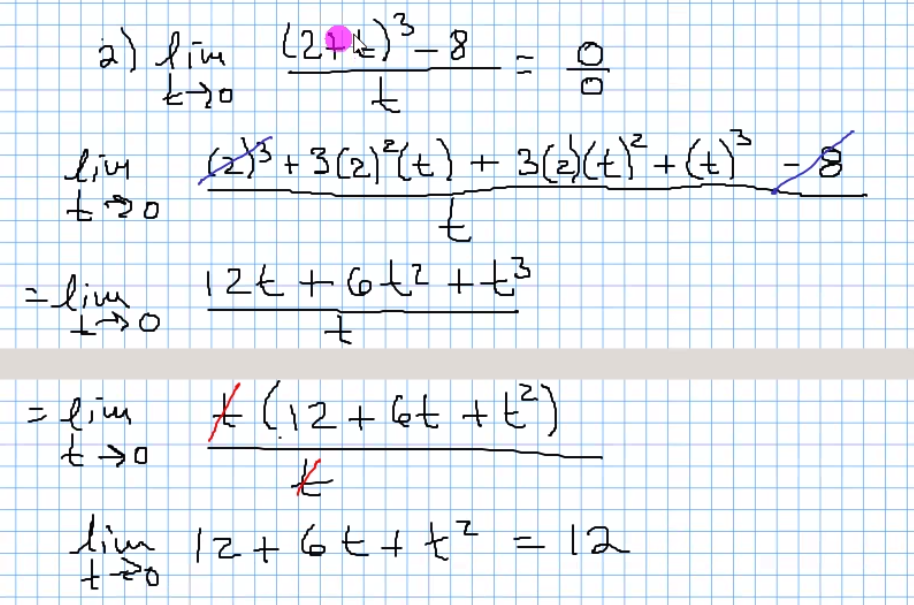 2) lim t→0 ((2+t)³ - 8)/t = 0/0
lim t→0 ((2)³ + 3(2)²(t) + 3(2)(t)² + (t)³ - 8)/t
= lim t→0 (12t + 6t² + t³)/t
= lim t→0 t(12 + 6t + t²)/t
lim t→0 12 + 6t + t² = 12